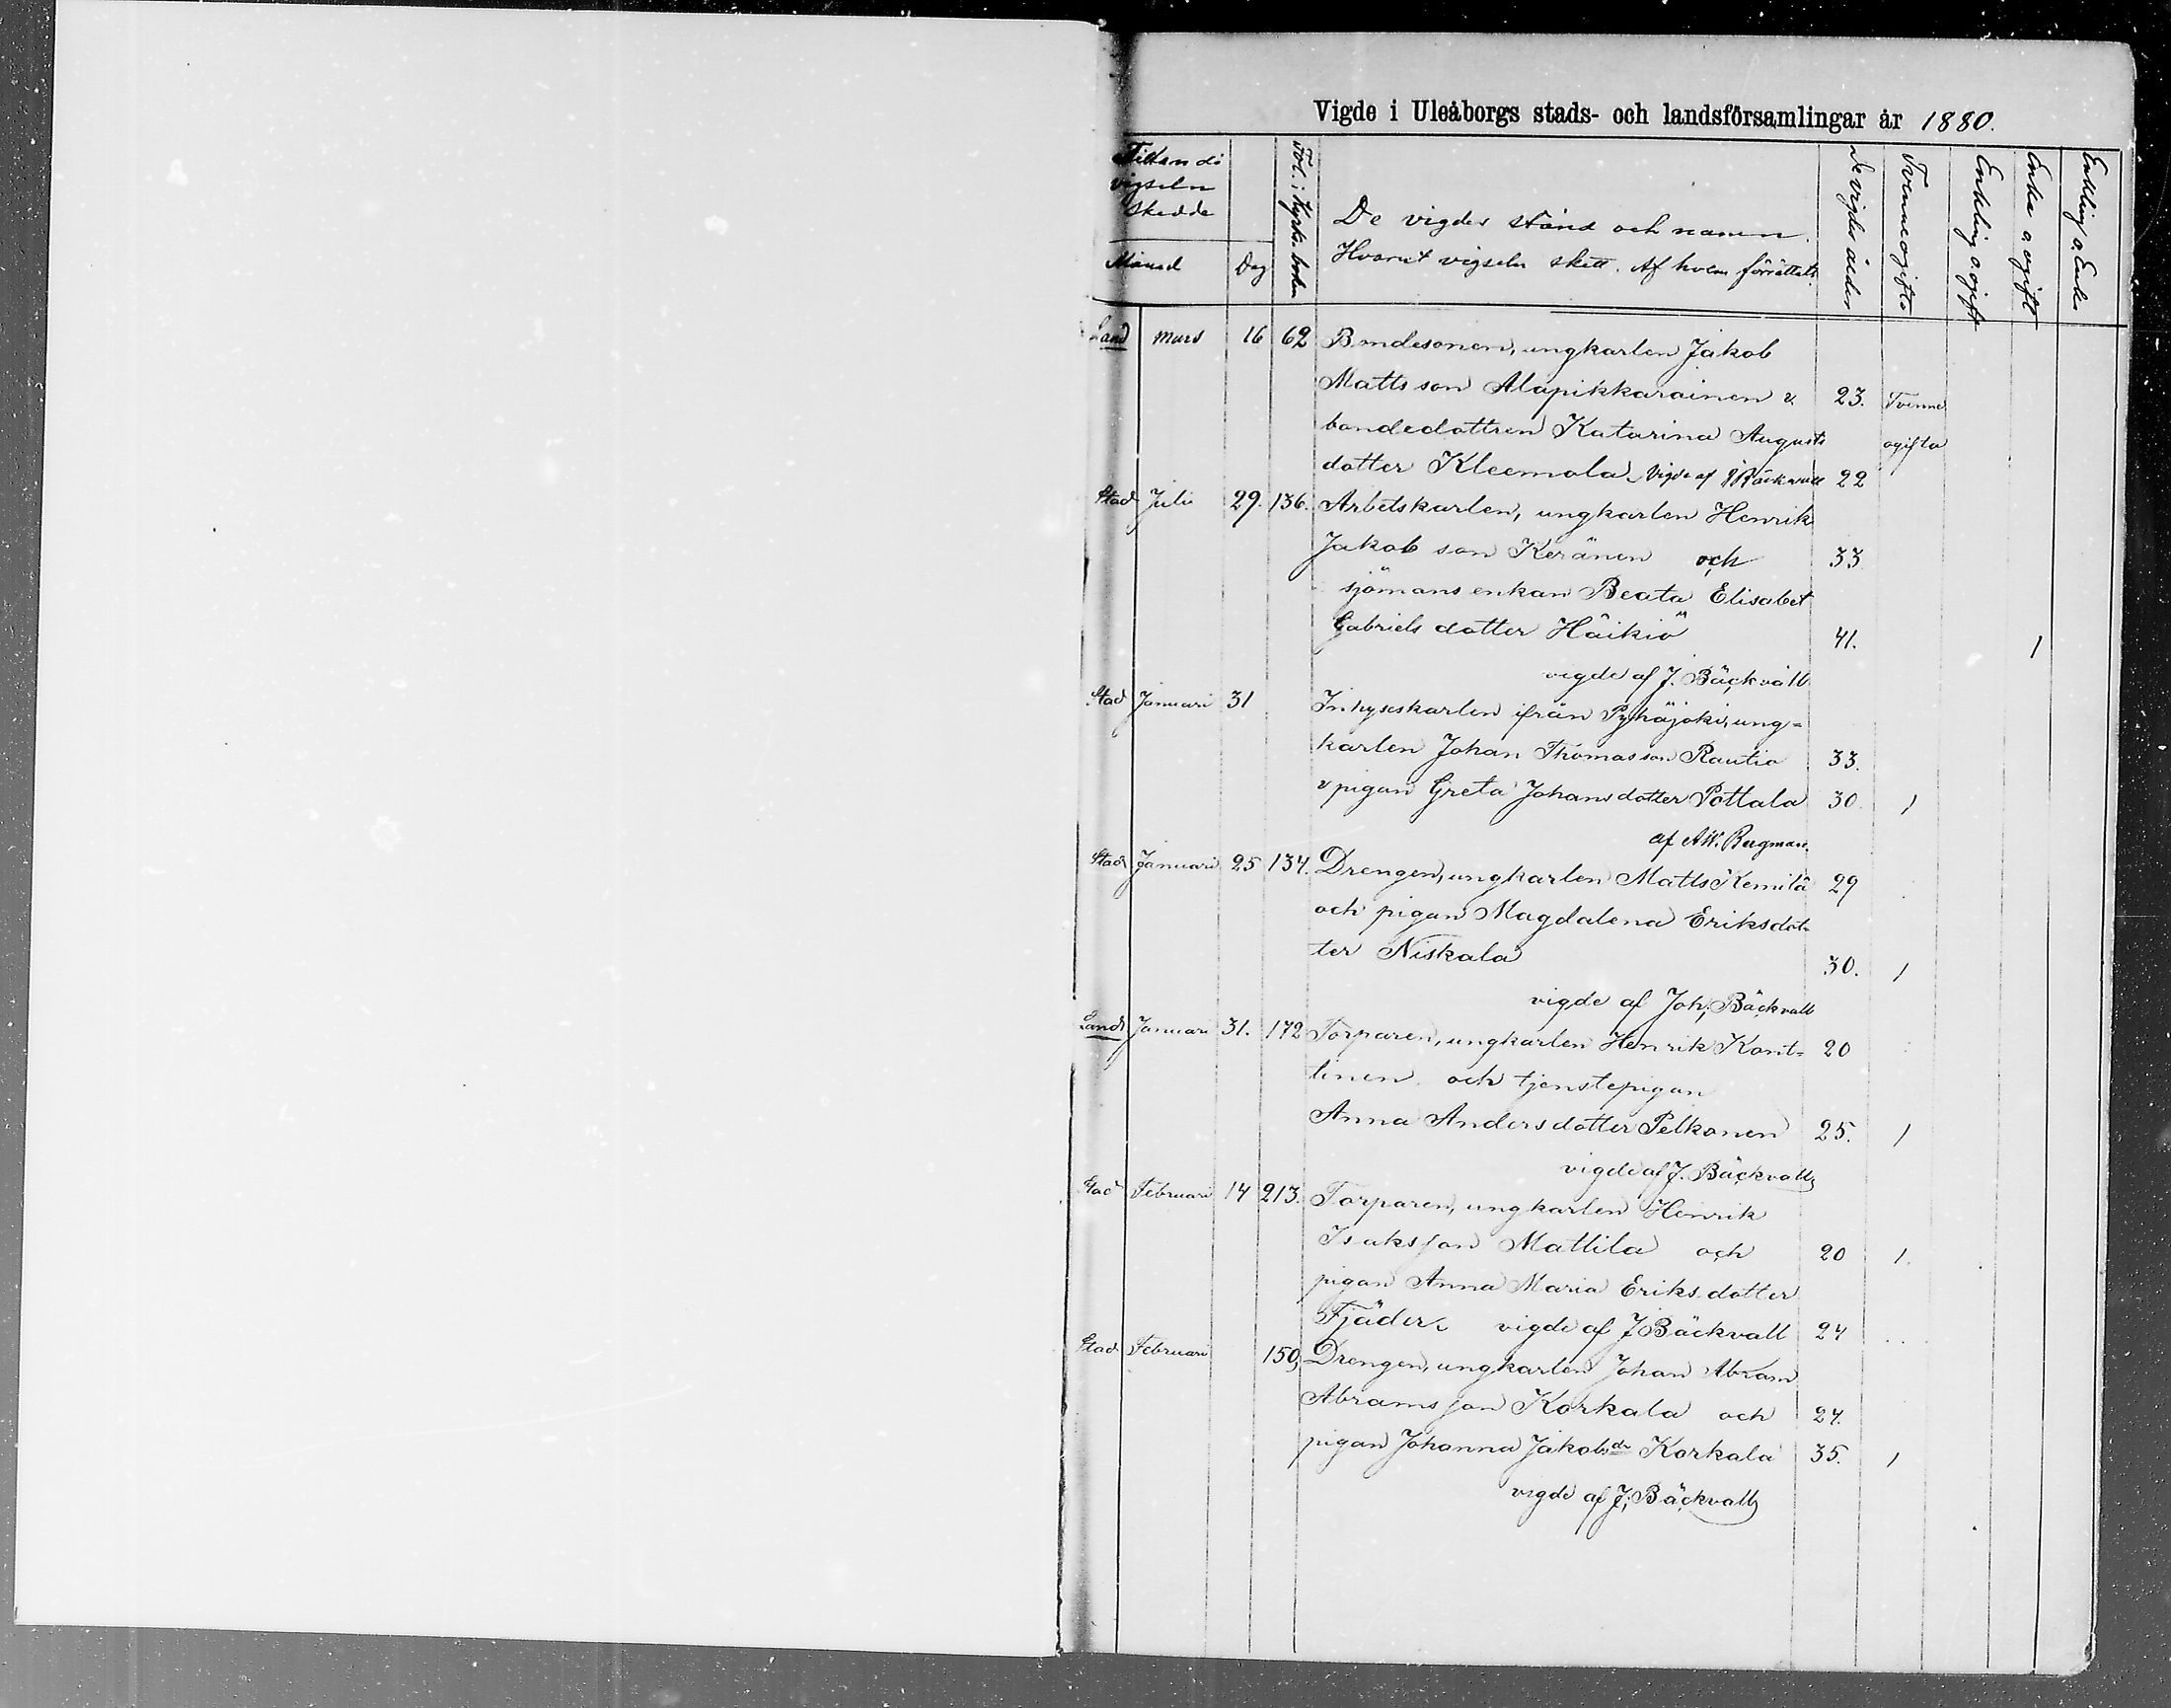 Vigde i Uleåborgs stads- och landsförsamlingar år 1880.
Tiden då vigseln skedde
Månad Dag
Fol. i Kyrko boken
De vigdes stånd och namn.
Hvarest vigseln skett. Af hvem förrättats.
De vigdes ålder
Tvenne ogifte
Enkling o ogift
Enka o ogift
Enkling o. Enka
Land mars 16 62 Bondesonen, ungkarlen Jakob
Matts son Alapikkarainen o. 23. Tvenne
bondedottren Katarina Augusts ogifta
dotter Kleemola. Vigde af J Bäckvall 22
Stad Juli 29. 136. Arbetskarlen, ungkarlen Henrik
Jakob son Keränen och 33
sjömans enkan Beata Elisabet
Gabriels dotter Häikiö 41. 1
vigde af J. Bäckvall
Stad Januari 31 Inhyseskarlen ifrån Pyhäjoki, ung-
karlen Johan Thomas son Rautio 33.
o pigan Greta Johans dotter Pottala 30. 1
af AW. Bergman.
Stad Januari 25 134. Drengen, ungkarlen Matts Kemilä 29
och pigan Magdalena Eriksdot-
ter Niskala 30. 1
vigde af Joh; Bäckvall
Land Januari 31. 172 Torparen, ungkarlen Henrik Kont- 20
tinen och tjenstepigan
Anna Anders dotter Pelkonen 25. 1
vigde af J. Bäckvall
Stad Februari 14 213. Torparen, ungkarlen Henrik
Isaksson Mattila och 20 1.
pigan Anna Maria Eriks dotter
Fjäder. vigde af J Bäckvall 24
Stad Februari 150, Drengen, ungkarlen Johan Abram
Abramsson Korkala och 24.
pigan Johanna Jakobsdr Korkala 35. 1
vigde af J; Bäckvall